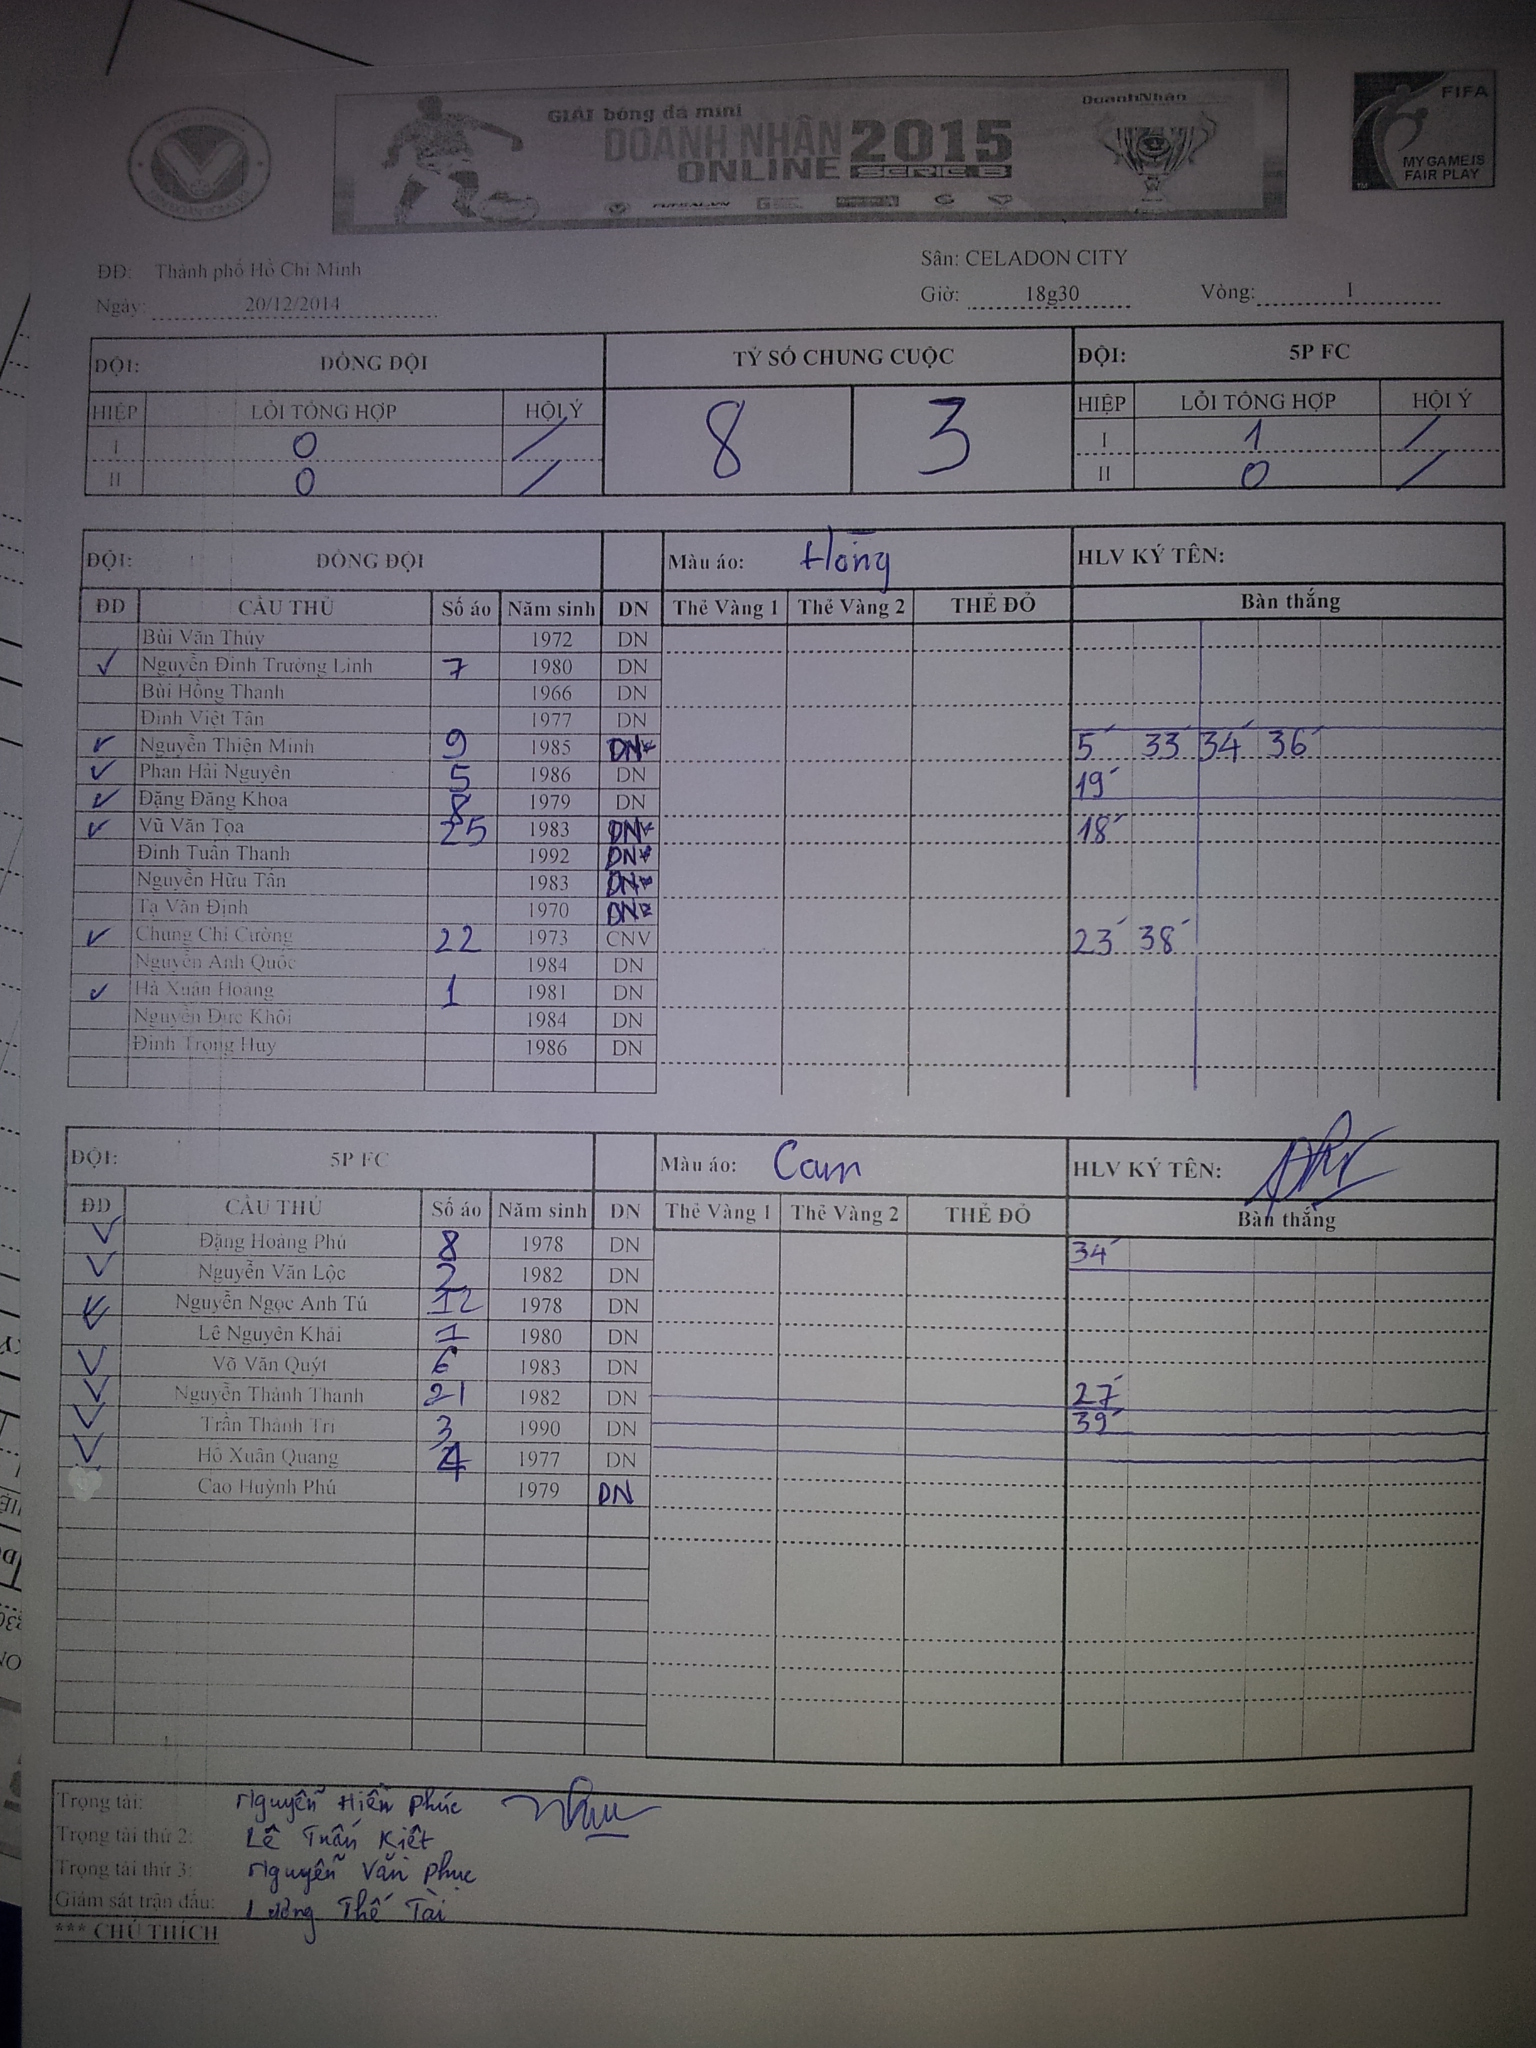 GIẢI bóng đá mini
DOANH NHÂN 2015
ONLINE SERIE B
DoanhNhân
FUTSAL.VN
FIFA
MY GAME IS
FAIR PLAY
ĐĐ: Thành phố Hồ Chí Minh Sân: CELADON CITY
Ngày: 20/12/2014 Giờ: 18g30 Vòng: 1
ĐỘI: ĐỒNG ĐỘI TỶ SỐ CHUNG CUỘC ĐỘI: 5P FC
HIỆP LỖI TỔNG HỢP HỘI Ý 8 3 HIỆP LỖI TỔNG HỢP HỘI Ý
I 0 / I 1 /
II 0 / II 0 /
ĐỘI: ĐỒNG ĐỘI Màu áo: Hồng HLV KÝ TÊN:
ĐD CẦU THỦ Số áo Năm sinh DN Thẻ Vàng 1 Thẻ Vàng 2 THẺ ĐỎ Bàn thắng
Bùi Văn Thủy 1972 DN
✓ Nguyễn Đình Trường Linh 7 1980 DN
Bùi Hồng Thanh 1966 DN
Đinh Việt Tân 1977 DN
✓ Nguyễn Thiện Minh 9 1985 DN* 5' 33' 34' 36'
✓ Phan Hải Nguyên 5 1986 DN 19'
✓ Đặng Đăng Khoa 8 1979 DN
✓ Vũ Văn Tọa 25 1983 DN* 18'
Đinh Tuấn Thanh 1992 DN*
Nguyễn Hữu Tân 1983 DN*
Tạ Văn Định 1970 DN*
✓ Chung Chí Cường 22 1973 CNV 23' 38'
Nguyễn Anh Quốc 1984 DN
✓ Hà Xuân Hoàng 1 1981 DN
Nguyễn Đức Khôi 1984 DN
Đinh Trọng Huy 1986 DN
ĐỘI: 5P FC Màu áo: Cam HLV KÝ TÊN:
ĐD CẦU THỦ Số áo Năm sinh DN Thẻ Vàng 1 Thẻ Vàng 2 THẺ ĐỎ Bàn thắng
✓ Đặng Hoàng Phú 8 1978 DN 34'
✓ Nguyễn Văn Lộc 2 1982 DN
✓ Nguyễn Ngọc Anh Tú 12 1978 DN
✓ Lê Nguyên Khải 1980 DN
✓ Võ Văn Quýt 6 1983 DN
✓ Nguyễn Thành Thanh 21 1982 DN 27'
✓ Trần Thành Trí 3 1990 DN 39'
✓ Hồ Xuân Quang 4 1977 DN
Cao Huỳnh Phú 1979 DN
Trọng tài: Nguyễn Hiền Phúc
Trọng tài thứ 2: Lê Tuấn Kiệt
Trọng tài thứ 3: Nguyễn Văn Phục
Giám sát trận đấu: Lương Thế Tài
*** CHÚ THÍCH